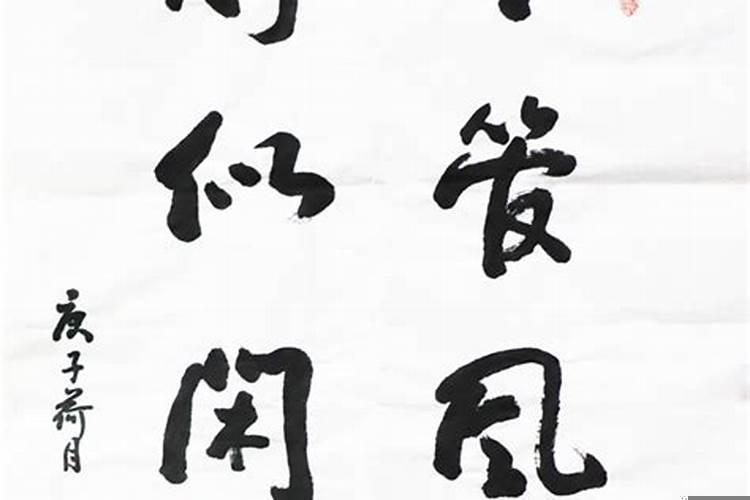 管風
似閑
庚子荷月